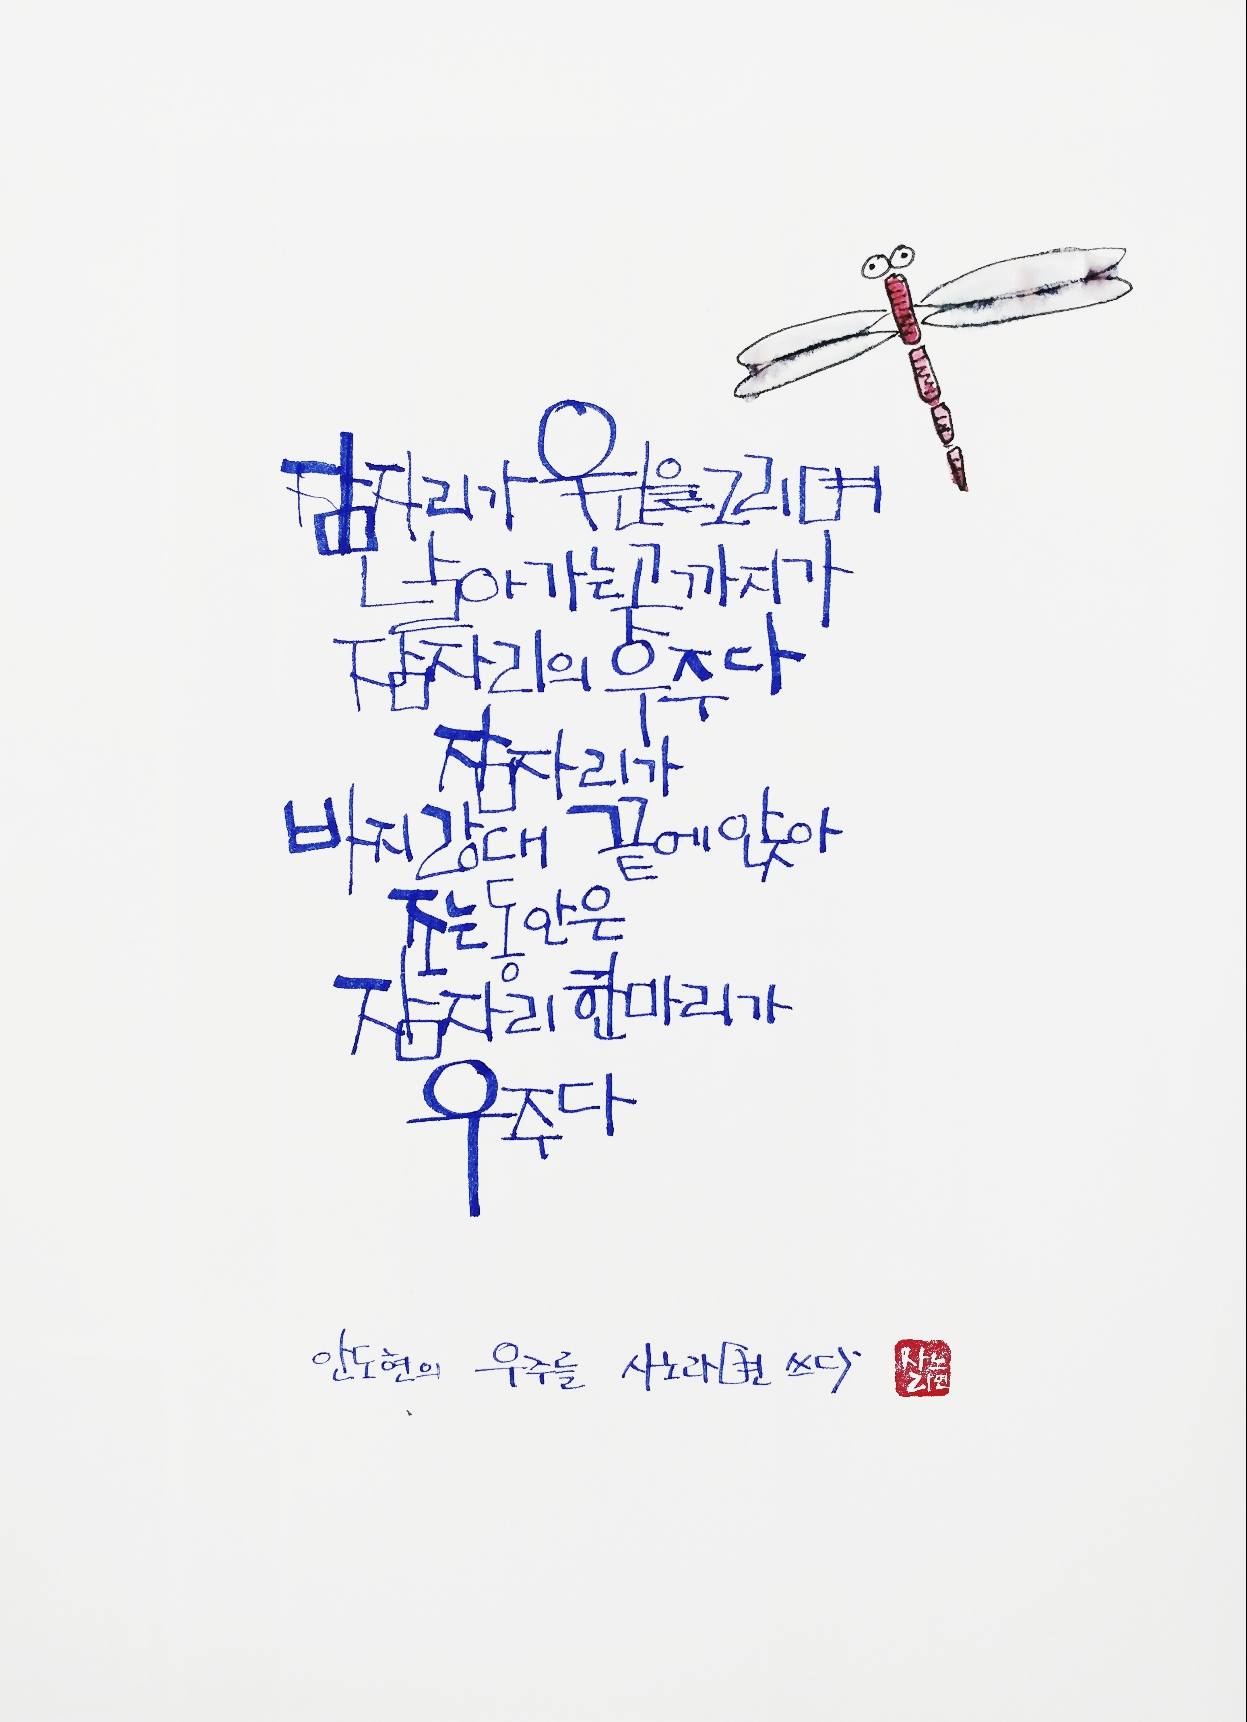 잠자리가 원을그리며
날아가는곳까지가
잠자리의 우주다
잠자리가
바지랑대 끝에앉아
조는동안은
잠자리한마리가
우주다
안도현의 우주를 사노라면 쓰다
사노
라면